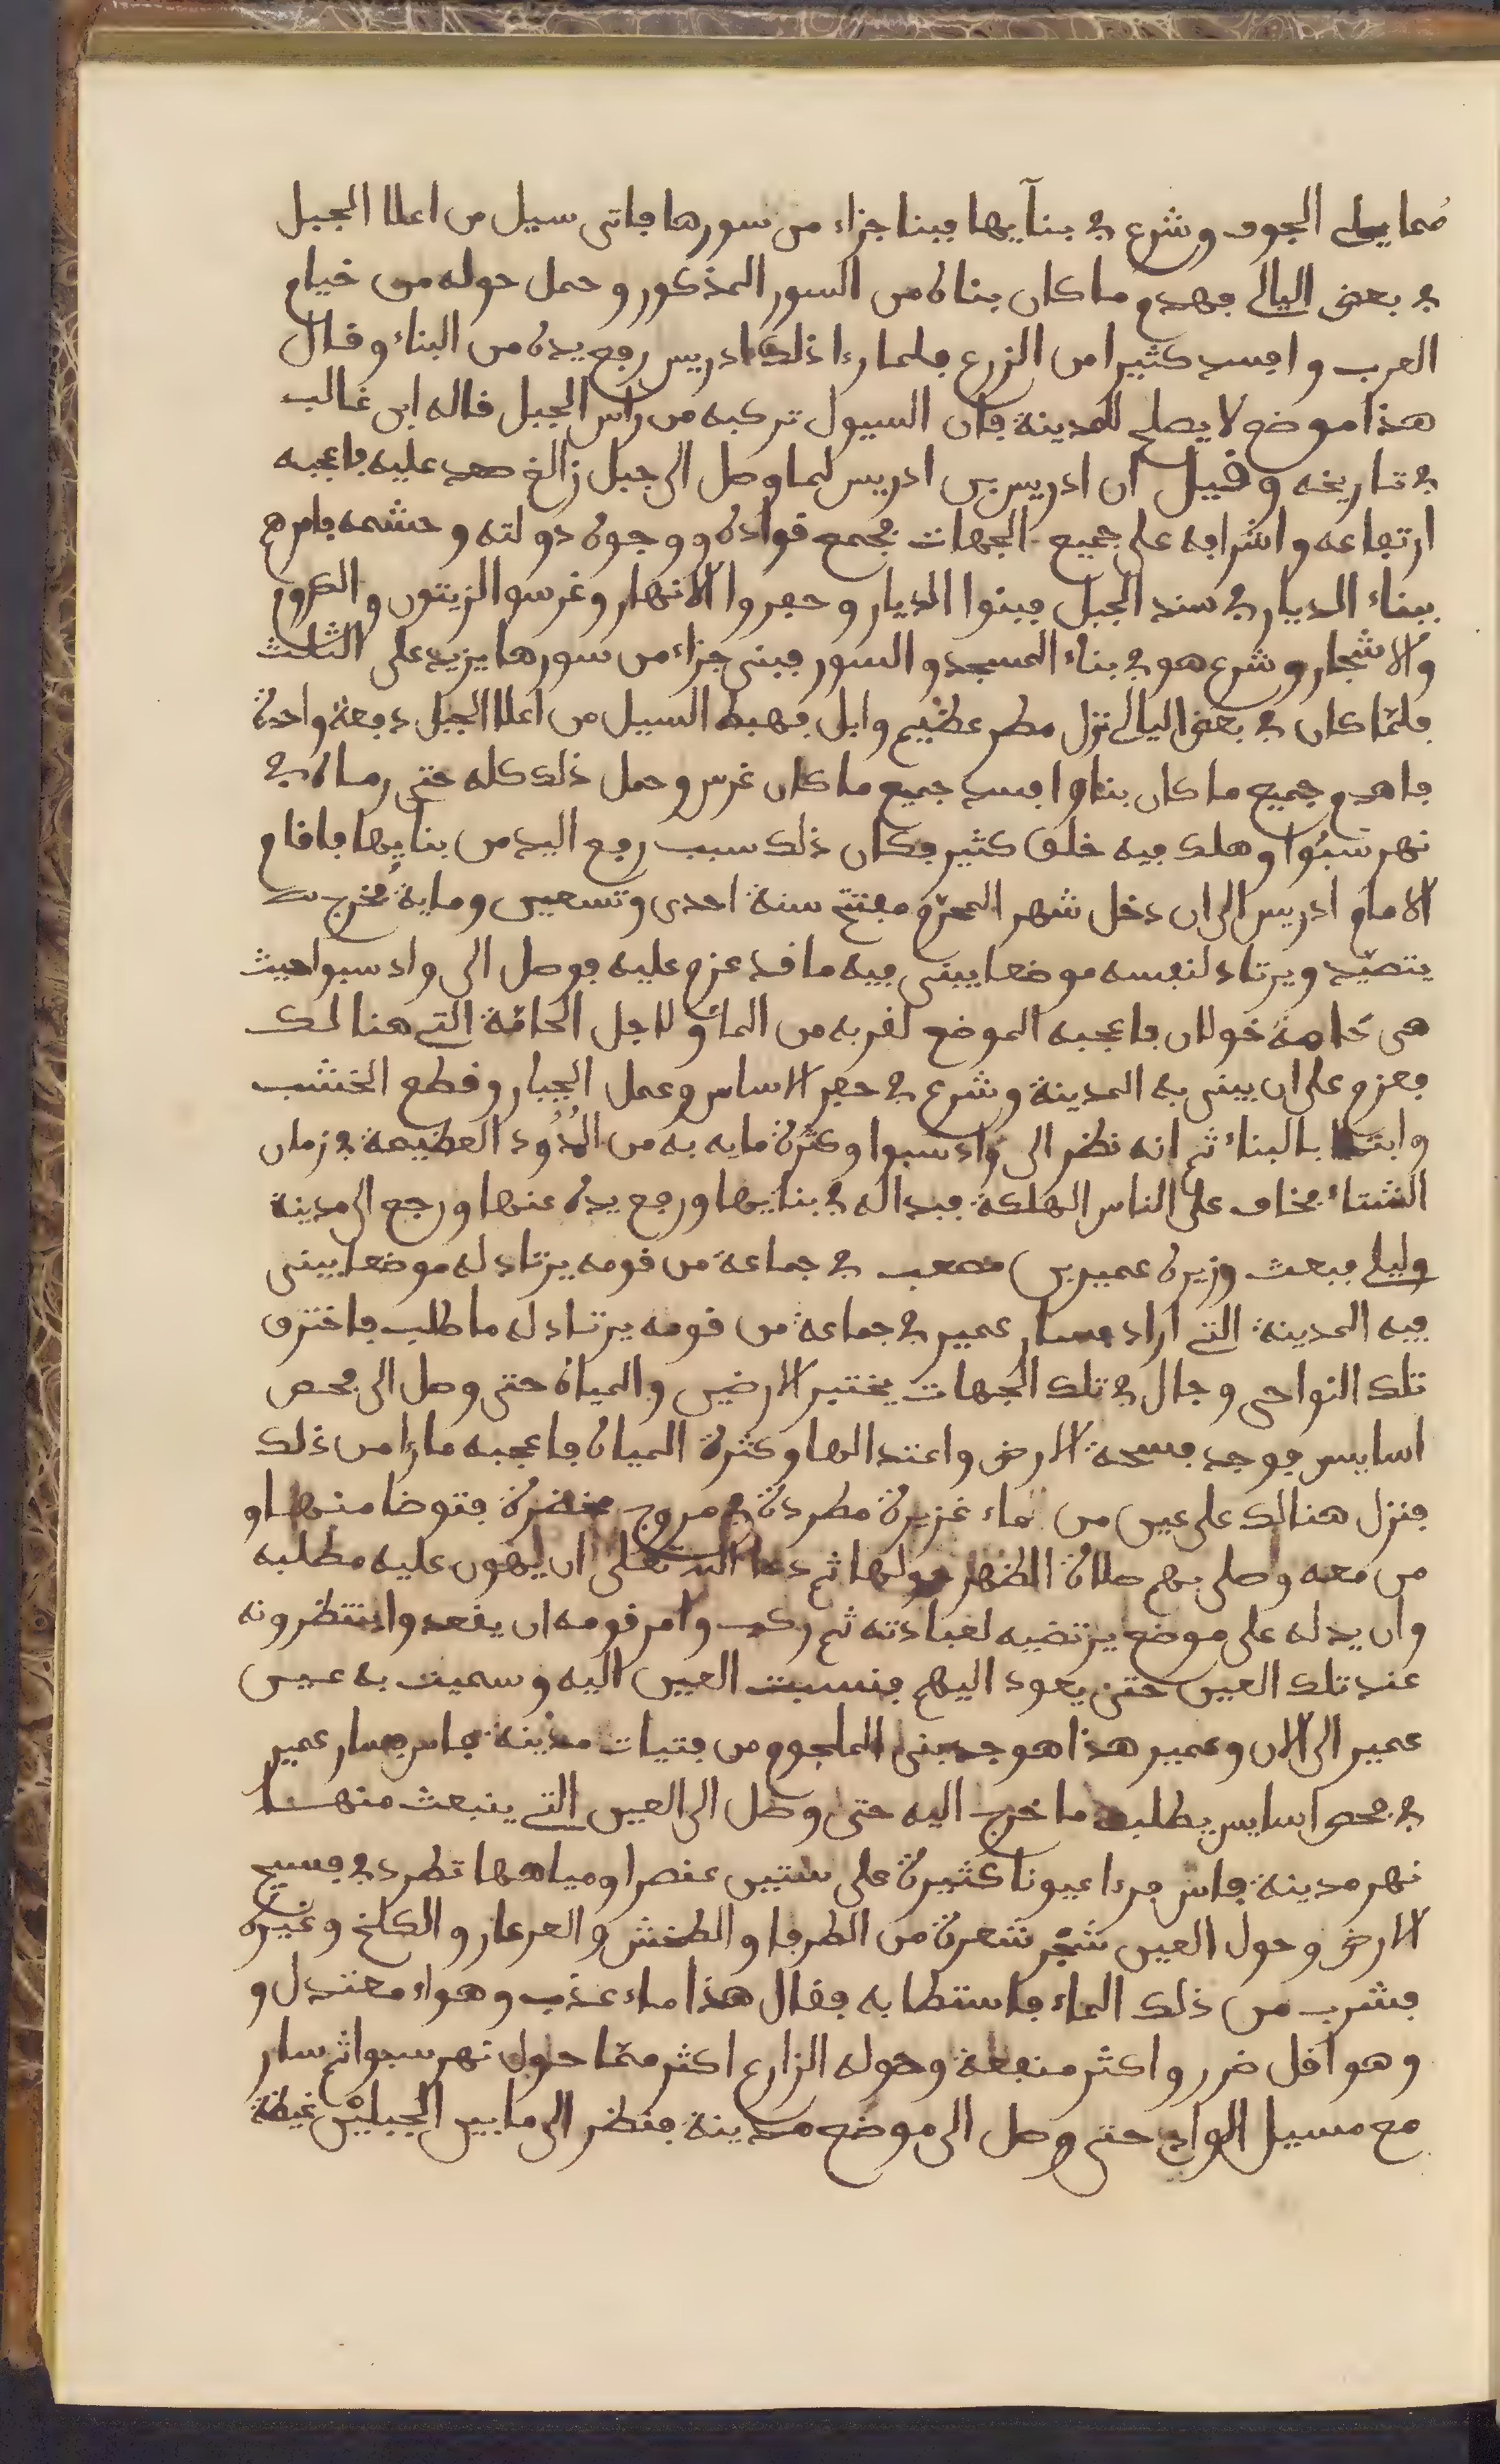 مما يلى الجوف وشرع في بنآيها فبنا جزاء من سورها فاتى سيل من اعلا الجبل
في بعض اليالي فهدم ما كان بناه من السور المذكور وحمل حوله من خيام
العرب وافسد كثيرا من الزرع فلما رءا ذلك ادريس رفع يده من البناء وقال
هذا موضع لا يصلح للمدينة فان السيول تركبه من راس الجبل قاله ابن غالب
في تاريخه وقيل ان ادريس بن ادريس لما وصل الى جبل زالغ صعد عليه فاعجبه
ارتفاعه واشرافه على جميع الجهات فجمع قواده ووجوه دولته وحشمه فامرهم
ببناء الديار في سند الجبل فبنوا الديار وحفروا الانهار وغرسوا الزيتون والكروم
والاشجار وشرع هو في بناء المسجد والسور فبنى جزاء من سورها يزيد على الثالث
فلمّا كان في بعض اليالي نزل مطر عظيم وابل فهبط السيل من اعلا الجبل دفعة واحدة
فاهدم جميع ما كان بناه وافسد جميع ما كان غرس وحمل ذلك كله حتى رماه في
نهر سبُوا وهلك فيه خلق كثير فكان ذلك سبب رفع اليد من بنايها فاقام
الامام ادريس الى ان دخل شهر المحرّم مفتتح سنة احدى وتسعين وماية فخرج
يتصيّد ويرتاد لنفسه موضعا يبنى فيه ما قد عزم عليه فوصل الى واد سبوا حيث
هى حامة خولان فاعجبه الموضع لقربه من الماء ولاجل الحامّة التي هنالك
فعزم على ان يبنى به المدينة وشرع في حفر الاساس وعمل الجيار وقطع الخشب
وابتدا بالبناء ثم انه نظر الى واد سبوا وكثرة مايه به من المُدُود العظيمة في زمان
الشتاء فخاف على الناس الهلكة فبدا له في بنايها ورفع يده عنها ورجع الى مدينة
وليلي فبعث وزيره عمير بن مصعب في جماعة من قومه يرتاد له موضعا يبنى
فيه المدينة التي اراد فسار عمير في جماعة من قومه يرتاد له ما طلب فاخترق
تلك النواحى وجال في تلك الجهات يختبر الارضين والمياه حتى وصل الى فحص
اسايس فوجد فسحة الارض واعتدالها وكثرة المياه فاعجبه ما رءا من ذلك
فنزل هنالك على عين من ماء غزيرة مطردة في مروج مخضرة فتوضا منها و
من معه وصلى بهم صلاة الظهر حولها ثم دعا الله تعلى ان يهون عليه مطلبه
وان يدله على موضع يرتضيه لعبادته ثم ركب وامر قومه ان يقعدوا ينتظرونه
عند تلك العين حتى يعود اليهم فنسبت العين اليه وسميت به عين
عمير الى الان وعمير هذا هو جد بنى الملجوم من فتيات مدينة فاس فسار عمير
في فحص اسايس يطلب ما خرج اليه حتى وصل الى العين التي ينبعث منها
نهر مدينة فاس فرءا عيونا كثيرة على ستين عنصرا ومياهها تطرد في فسيح
الارض وحول العين شجر شعرة من الطرفا والطخش والعرعار والكلخ وغيره
فشرب من ذلك الماء فاستطابه فقال هذا ماء عذب وهواء معتدل و
وهو اقل ضرر واكثر منفعة وحوله الزارع اكثر ممّا حول نهر سبوا ثم سار
مع مسيل الواد حتى وصل الى موضع مدينة فنظر الى ما بين الجبلين غيضة